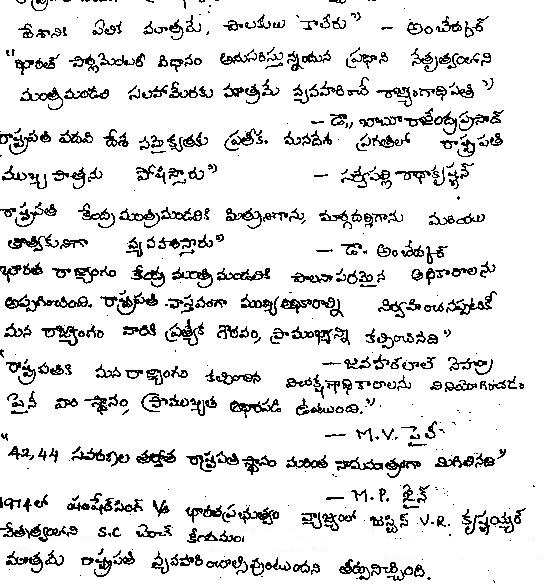 దేశానికి నేత మాత్రమే, పాలకుడు కాలేరు" - అంబేద్కర్
"భారత పార్లమెంటరీ విధానం అనుసరిస్తున్నందున ప్రధాని నేతృత్వంలోని
మంత్రిమండలి సలహామేరకు మాత్రమే వ్యవహరించే రాజ్యాంగాధిపతి"
- డా,, బాబూ రాజేంద్రప్రసాద్
రాష్ట్రపతి పదవి దేశ సమైక్యతకు ప్రతీక. మనదేశ ప్రగతిలో రాష్ట్రపతి
ముఖ్య పాత్రను పోషిస్తారు" - సర్వేపల్లి రాధాకృష్ణన్
రాష్ట్రపతి కేంద్ర మంత్రిమండలికి మిత్రునిగాను, మార్గదర్శిగాను మరియు
తాత్వికునిగా వ్యవహరిస్తారు" - డా. అంబేద్కర్
భారత రాజ్యాంగం కేంద్ర మంత్రి మండలికి పాలనాపరమైన అధికారాలను
అప్పగించింది. రాష్ట్రపతి వాస్తవంగా ముఖ్య అధికారాల్ని నిర్వహించనప్పటికీ
మన రాజ్యాంగం వారికి ప్రత్యేక గౌరవం, ప్రాముఖ్యాన్ని కల్పించినది"
- జవహర్‌లాల్ నెహ్రూ
"రాష్ట్రపతికి మన రాజ్యాంగం కల్పించిన విచక్షణాధికారాలను వినియోగించడం
పైనే వారి స్థానం, ప్రాముఖ్యత ఆధారపడి ఉంటుంది."
- M.V. పైలీ
"42,44 సవరణల తర్వాత రాష్ట్రపతి స్థానం మరింత నామమాత్రంగా మిగిలినది"
- M.P. జైన్
1974లో షంషేర్‌సింగ్ Vs భారతప్రభుత్వం వ్యాజ్యంలో జస్టిస్ V.R. కృష్ణయ్యర్
నేతృత్వంలోని S.C బెంచ్ కేంద్రమం
మాత్రమే రాష్ట్రపతి వ్యవహరించాల్సివుంటుందని తీర్పునిచ్చింది.